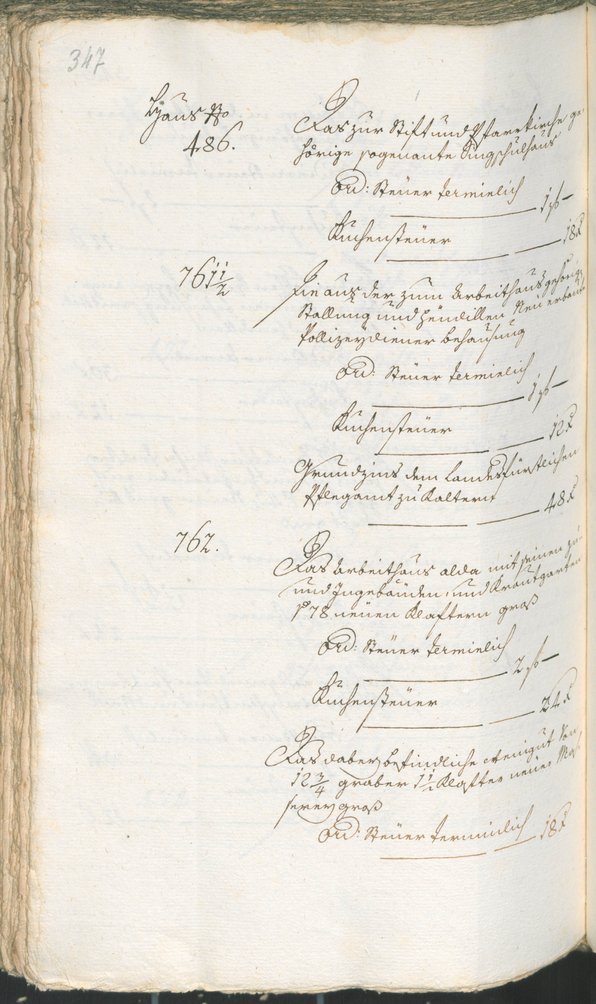 347
Haus No
486.
Das zur Stift und Pfarrkirche ge
hörige sogenante Singschulhaus
Ord: Steuer terminlich
1 f —
Küchensteuer
18 x
761 1/2
Ein aus der zum Arbeithaus gehörig
Stallung und neu erbaute
Pollizeydiener behausung
Ord: Steuer terminlich
1 f —
Küchensteuer
12 x
Grundzins dem Landesfürstlichen
Pflegamt zu Kaltern
48 x
762.
Das Arbeithaus alda mit seinen
und Ingebäuden, und Krautgarten
178 neuen Klaftern groß
Ord: Steuer terminlich
2 f —
Küchensteuer
24 x
Das dabey befindliche Wenigut von
12 3/4 graber 1 1/2 Klafter neuer Mas
serey groß
Ord: Steuer terminlich
18 x